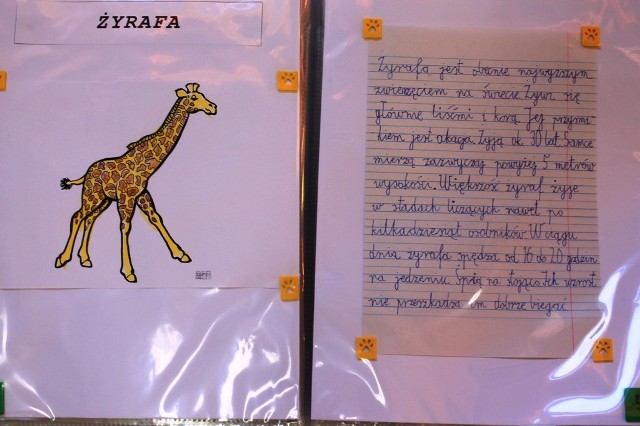 ŻYRAFA
Żyrafa jest obecnie najwyższym
zwierzęciem na świecie. Żywi się
głównie liśćmi i korą. Jej przysma
kiem jest akacja. Żyją ok. 30 lat. Samce
mierzą zazwyczaj powyżej 5 metrów
wysokości. Większość żyraf żyje
w stadach liczących nawet po
kilkadziesiąt osobników. W ciągu
dnia żyrafa spędza od 16 do 20 godzin
na jedzeniu. Śpią na stojąco. Ich wzrost
nie przeszkadza im dobrze biegać